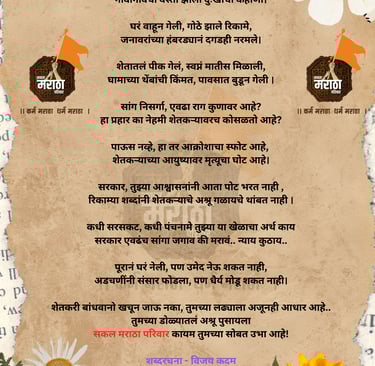 घरं वाहून गेली, गोठे झाले रिकामे,
जनावरांच्या हंबरड्यानं दगडही नरमले।
शेतातलं पीक गेलं, स्वप्नं मातीस मिळाली,
घामाच्या थेंबांची किंमत, पावसात बुडून गेली ।
सांग निसर्गा, एवढा राग कुणावर आहे?
हा प्रहार का नेहमी शेतकऱ्यावरच कोसळतो आहे?
पाऊस नव्हे, हा तर आक्रोशाचा स्फोट आहे,
शेतकऱ्याच्या आयुष्यावर मृत्यूचा घोट आहे।
सरकार, तुझ्या आश्वासनांनी आता पोट भरत नाही ,
रिकाम्या शब्दांनी शेतकऱ्याचे अश्रू गळायचे थांबत नाही ।
कधी सरसकट, कधी पंचनामे तुझ्या या खेळाचा अर्थ काय
सरकार एवढंच सांगा जगाव की मरावं.. न्याय कुठाय..
पूरानं घरं नेली, पण उमेद नेऊ शकत नाही,
अडचणींनी संसार फोडला, पण धैर्य मोडू शकत नाही।
शेतकरी बांधवानो खचून जाऊ नका, तुमच्या लढ्याला अजूनही आधार आहे..
तुमच्या डोळ्यातलं अश्रू पुसायला
सकल मराठा परिवार कायम तुमच्या सोबत उभा आहे!
शब्दरचना - विजय कदम
मराठा
।। कर्म मराठा धर्म मराठा ।
मराठा
।। कर्म मराठा धर्म मराठा ।